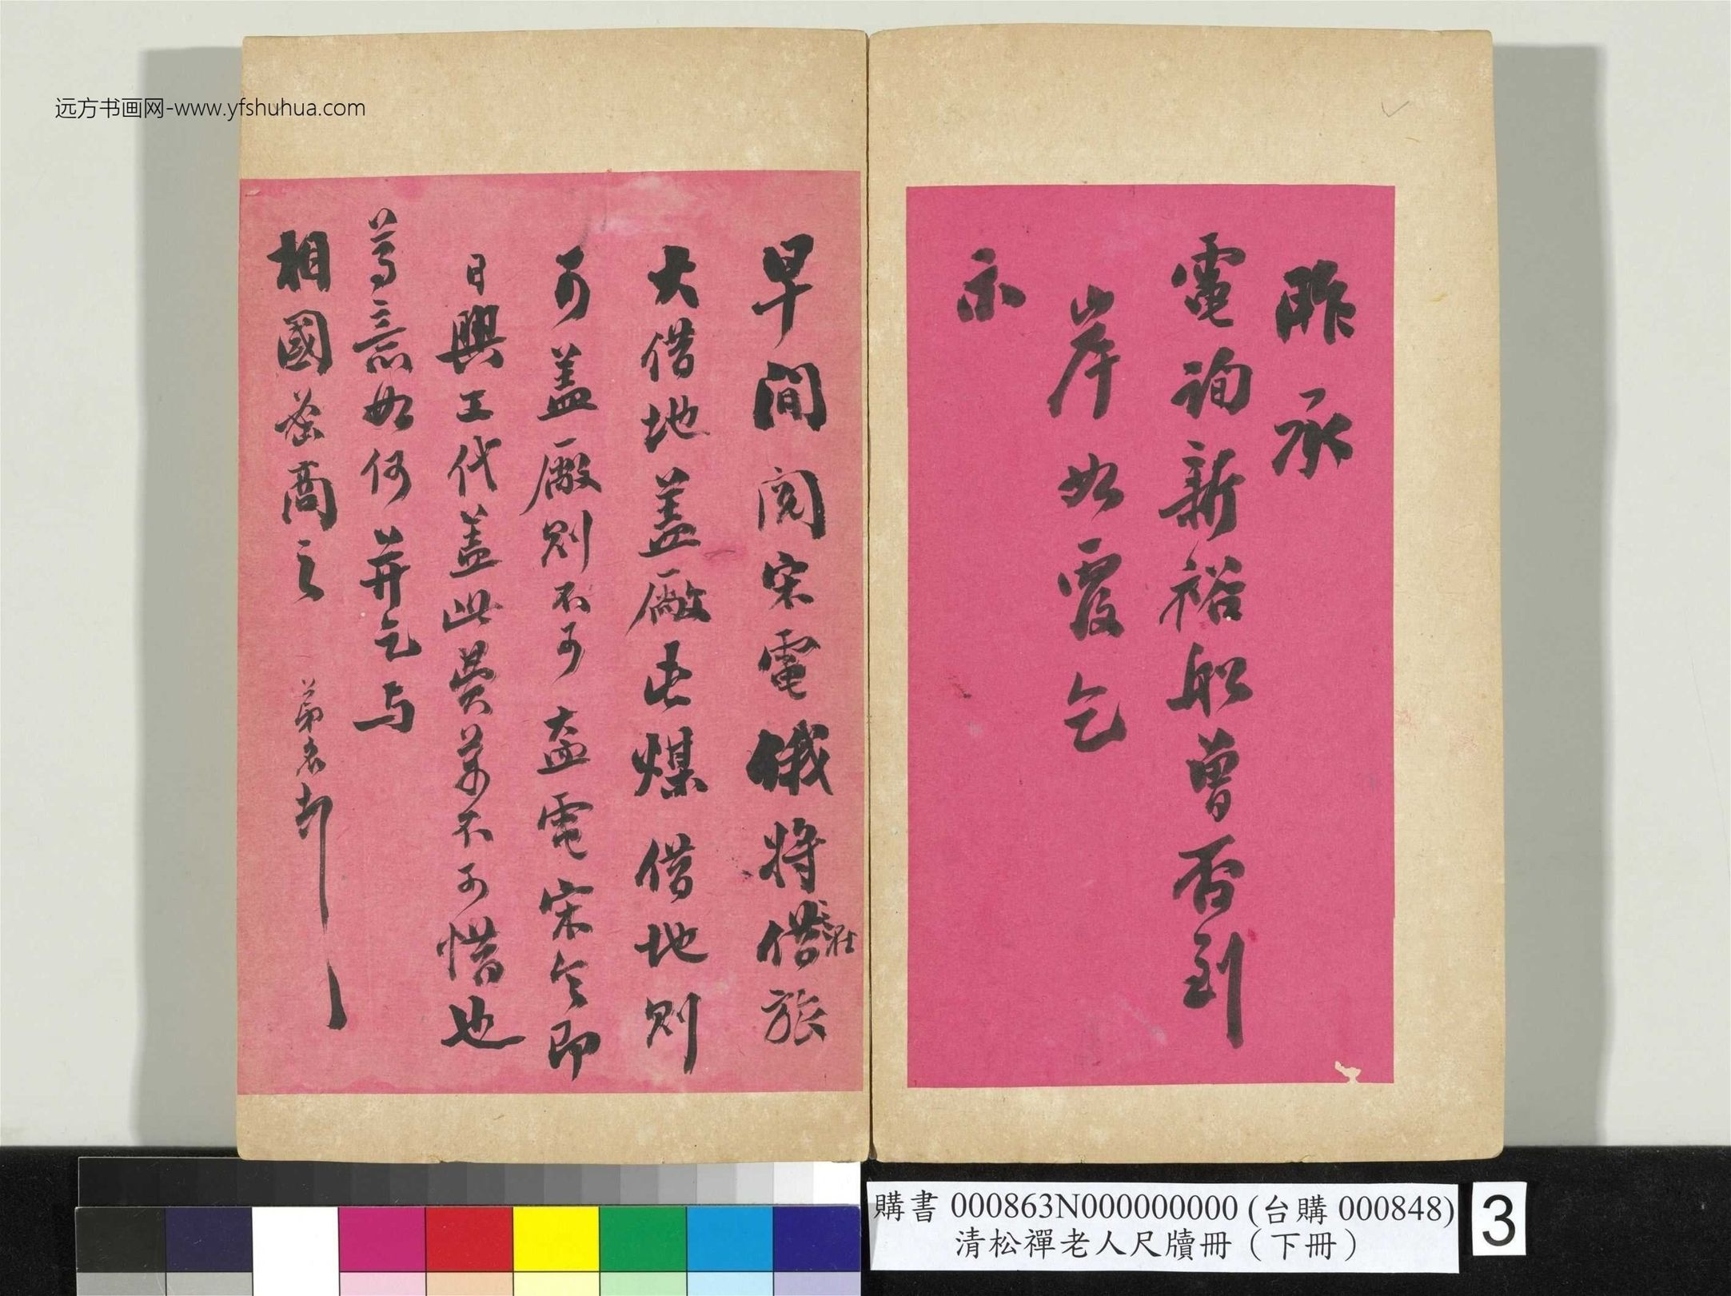 远方书画网-www.yfshuhua.com
昨承
電詢新裕船曾否到
岸如覆乞
示
早間閱宋電俄將借旅
大借地蓋廠屯煤借地則
可蓋廠則不可盍電宋令即
日興工代蓋此費萬不可惜也
尊意如何并乞与
相國密商之 弟名叩
購書 000863N000000000 (台購 000848)
清松禪老人尺牘冊（下冊）
3